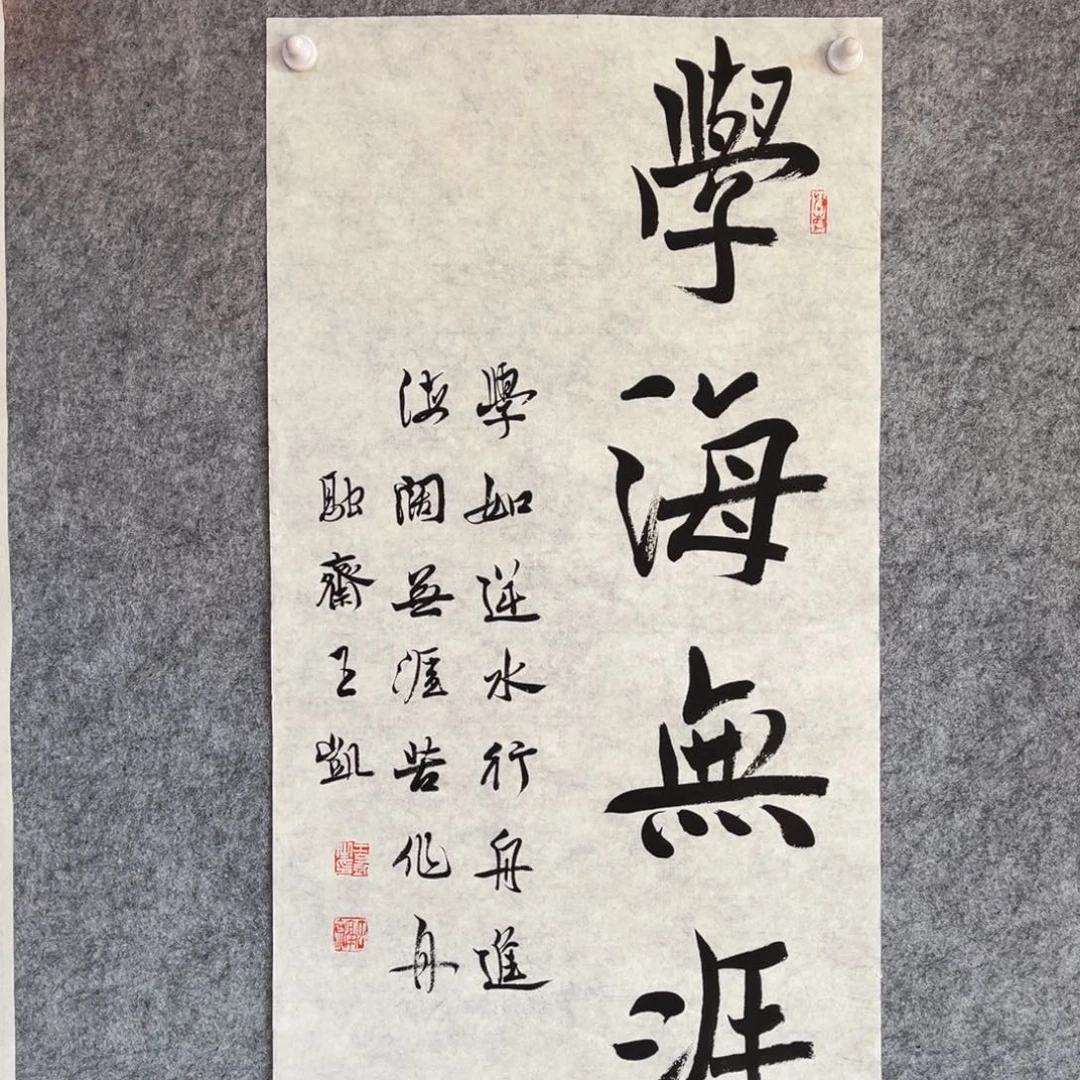 學海無涯
學如逆水行舟進
海闊無涯苦作舟
融齋王凱